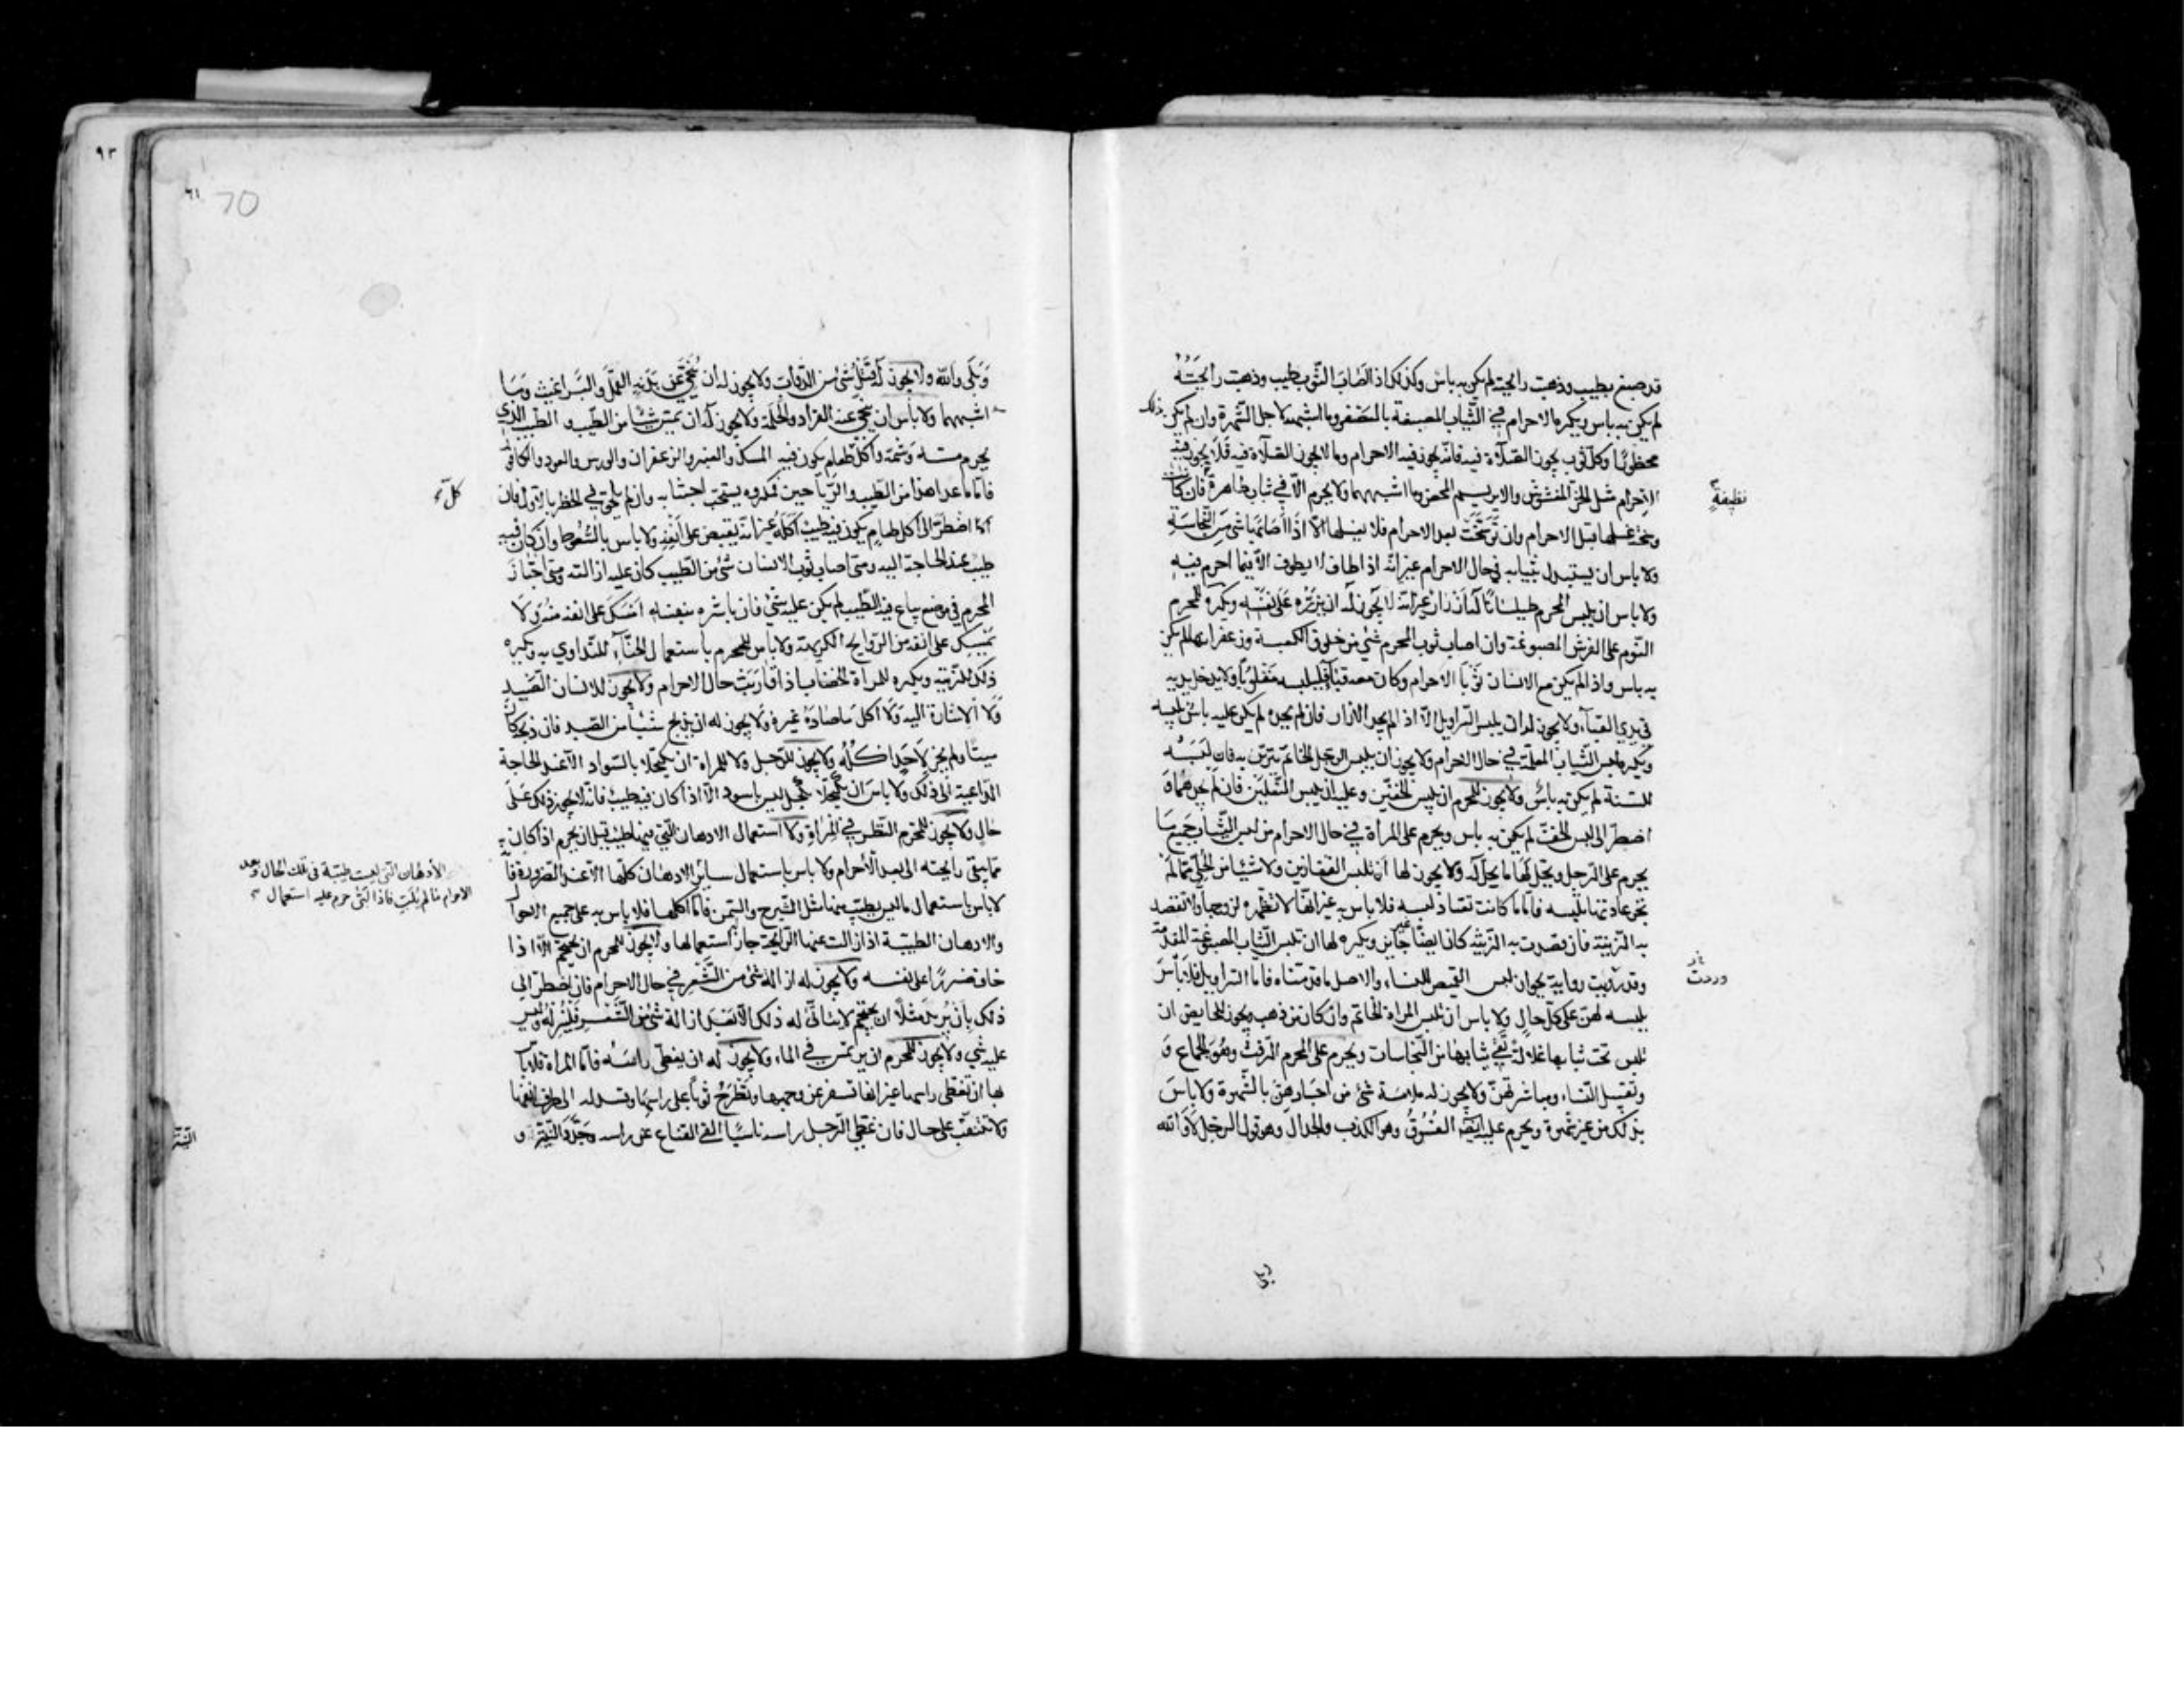 قد صبغ بطيب وذهبت رائحته لم يكن به باس وكذلك اذا اصاب الثوب طيب وذهبت رائحته
لم يكن به باس ويكره الاحرام في الثياب المصبغة بالعصفر وما اشبهه لاجل الشهرة وان لم يكن ذلك
محظورًا وكل ثوب يجوز الصلاة فيه فانه يجوز فيه الاحرام وما لا يجوز الصلاة فيه فلا يجوز فيه
الاحرام مثل الخز المغشوش والابريسم المحض وما اشبههما ولا يحرم الا في ثياب طاهرة فان كانت
نظيفة
وسخة غسلها قبل الاحرام وان توسخت بعد الاحرام فلا يغسلها الا اذا اصابها شئ من النجاسة
ولا باس ان يستبدل بثيابه في حال الاحرام غير انه اذا طاف لا يطوف الا فيما احرم فيه
ولا باس ان يلبس المحرم طيلسانًا له ازرار غير انه لا يجوز له ان يزره على نفسه ويكره للمحرم
النوم على الفرش المصبوغة وان اصاب ثوب المحرم شئ من خلوق الكعبة وزعفرانها لم يكن
به باس واذا لم يكن مع الانسان ثوبا الاحرام وكان معه قباء فليلبسه مقلوبًا ولا يدخل يديه
في يدي القباء ولا يجوز له ان يلبس السراويل الا اذا لم يجد الازار فان لم يجده لم يكن عليه باس بلبسه
ويكره لبس الثياب المعلمة في حال الاحرام ولا يجوز ان يلبس الرجل الخاتم يتزين به فان لبسه
للسنة لم يكن به باس ولا يجوز للمحرم ان يلبس الخفين وعليه ان يلبس النعلين فان لم يجدهما و
اضطر الى لبس الخف لم يكن به باس ويحرم على المرأة في حال الاحرام من لبس الثياب جميع ما
يحرم على الرجل ويحل لها ما يحل له ولا يجوز لها ان تلبس القفازين ولا شيئا من الحلي مما لم
تجر عادتها بلبسه فاما ما كانت تعتاد لبسه فلا باس به غير انها لا تظهره لزوجها ولا تقصد
به الزينة فان قصدت به الزينة كان ايضا غير جايز ويكره لها ان تلبس الثياب المصبغة المفدمة
وقد رويت رواية بجواز لبس القميص للنساء والاصل ما قدمناه فاما السراويل فلا باس
وردت
بلبسه لهن على كل حال ولا باس ان تلبس المراة الخاتم وان كان من ذهب ويجوز للحايض ان
تلبس تحت ثيابها غلالة تقي ثيابها من النجاسات ويحرم على المحرم الرفث وهو الجماع و
وتقبيل النساء ومباشرتهن ولا يجوز له ملامسة شئ من اجسادهن بالشهوة ولا باس
بذلك من غير شهوة ويحرم عليه ايضا الفسوق وهو الكذب والجدال وهو قول الرجل لا والله
وبلى
٩٣
٦١ 70
وبلى والله ولا يجوز له قتل شئ من الدواب ولا يجوز له ان ينحي عن بدنه القمل والبراغيث وما
اشبههما ولا باس ان ينحي عنه القراد والحلمة ولا يجوز له ان يمس شيئا من الطيب والطيب الذي
يحرم مسه وشمه واكل طعام يكون فيه المسك والعنبر والزعفران والورس والعود والكافور
فاما ما عدا هذا من الطيب والرياحين فمكروه يستحب اجتنابه وان لم يلحق في الحظر بالاول فان
كل
اضطر الى اكل طعام يكون فيه طيب اكله غير انه يقبض على انفه ولا باس بالسعوط وان كان فيه
طيب عند الحاجة اليه ومتى اصاب ثوب الانسان شئ من الطيب كان عليه ازالته ومتى اجتاز
المحرم في موضع يباع فيه الطيب لم يكن عليه شئ فان باشره بنفسه امسك على انفه منه ولا
يمسك على انفه من الروايح الكريهة ولا باس للمحرم باستعمال الحناء للتداوي به ويكره
ذلك للزينة ويكره للمراة الخضاب اذا قاربت حال الاحرام ولا يجوز للانسان الصيد
ولا الاشارة اليه ولا اكل ما صاده غيره ولا يجوز له ان يذبح شيئا من الصيد فان ذبحه كان
ميتا ولم يجز لاحد اكله ولا يجوز للرجل ولا للمراة ان يكتحلا بالسواد الا عند الحاجة
الداعية الى ذلك ولا باس ان يكتحلا بكحل ليس باسود الا اذا كان فيه طيب فانه لا يجوز ذلك على
حال ولا يجوز للمحرم النظر في المرآة ولا استعمال الادهان التي فيها طيب قبل ان يحرم اذا كان
مما يبقى رايحته الى بعد الاحرام ولا باس باستعمال ساير الادهان كلها الا عند الضرورة
الأدهان التي ليست طيبة في تلك الحال وبعد
الاحرام ما لم يلب فاذا لبى حرم عليه استعمال
لا باس باستعمال ما ليس بطيب منها مثل الشيرج والسمن فاما اكلها فلا باس به على جميع الاحوال
والادهان الطيبة اذا زالت عنها الرايحة جاز استعمالها ولا يجوز للمحرم ان يحتجم الا اذا
خاف ضررًا على نفسه ولا يجوز له ازالة شئ من الشعر في حال الاحرام فان اضطر الى
ذلك بان يريد مثلًا ان يحتجم لا يتأتى له ذلك الا بعد ازالة شئ من الشعر فليزله وليس
عليه شئ ولا يجوز للمحرم ان يرتمس في الماء ولا يجوز له ان يغطي راسه فاما المراة فلا باس
بها ان تغطي راسها غير انها تسفر عن وجهها وتطرح ثوبًا على راسها وتسدله الى طرف انفها
ولا تتنقب على حال فان غطى الرجل راسه ناسيًا القى القناع عن راسه وجدد التلبية و